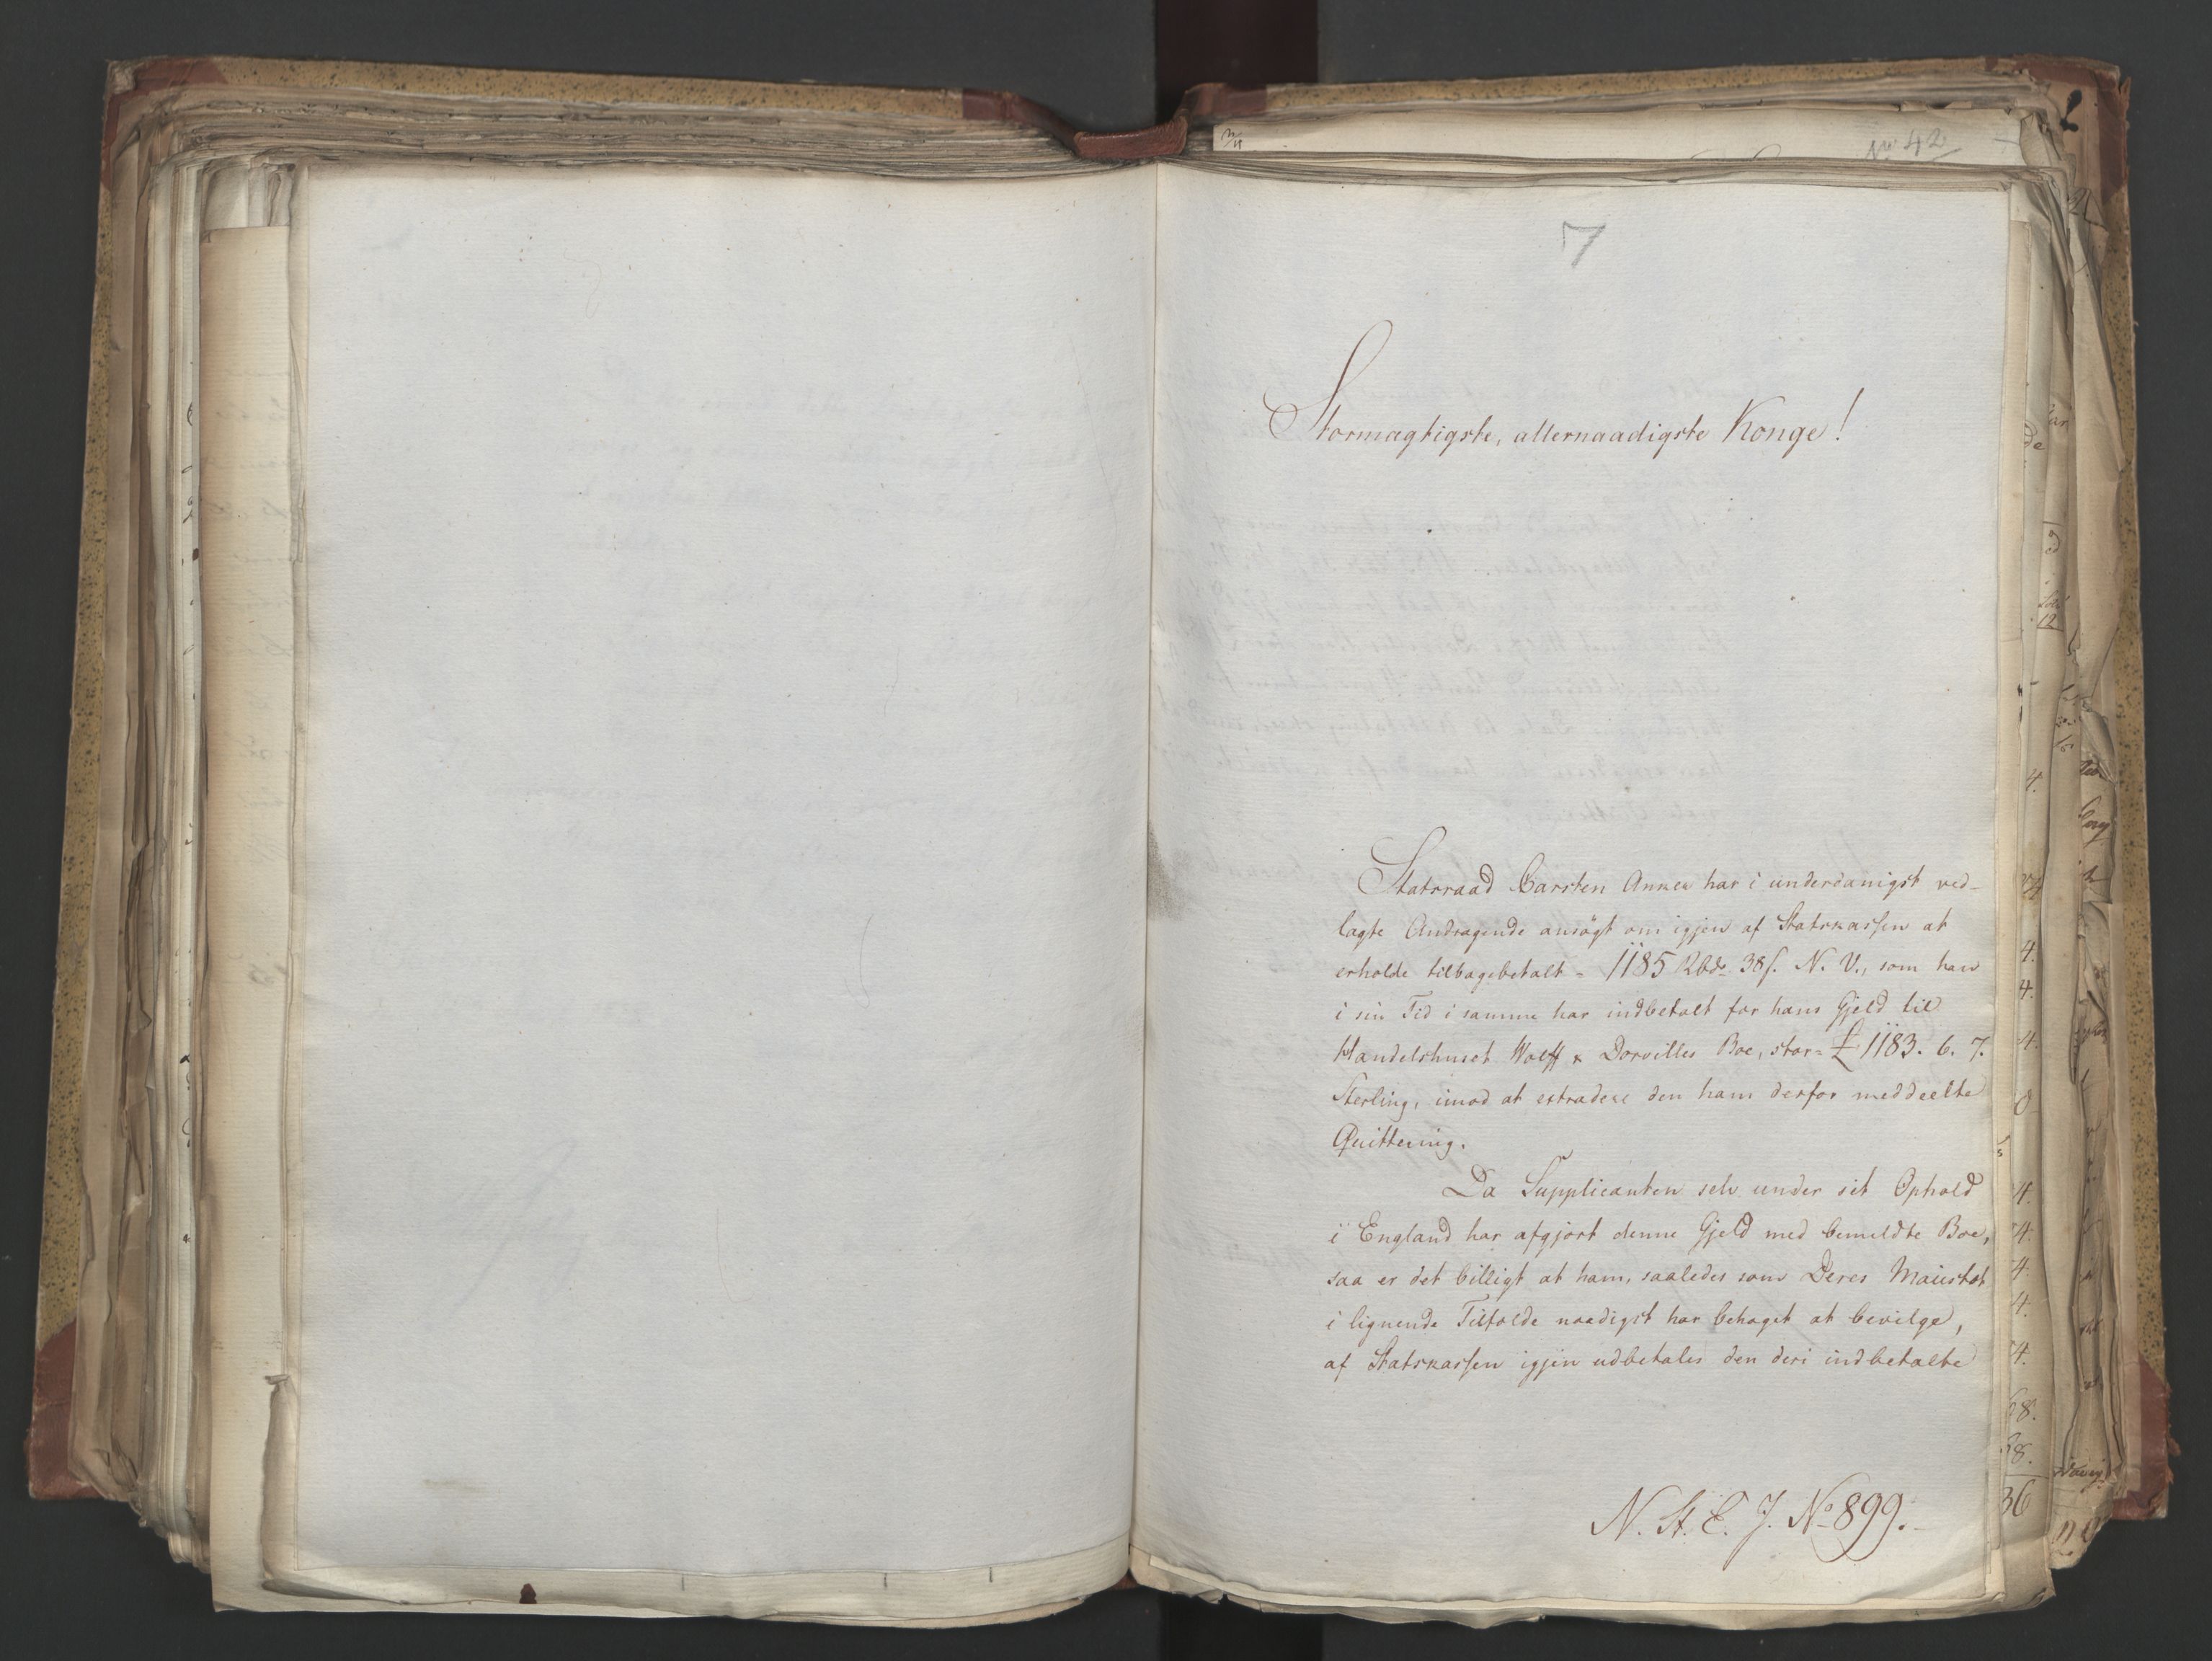 No 42
7
Stormægtigste, allernaadigste Konge!
Statsraad Carsten Anker har i underdanigst ved-
lagte Andragende ansögt om igjen af Statskassen at
erholde tilbagebetalt - 1185 Rbd. 38 s. N. V., som han
i sin Tid i samme har indbetalt for hans Gjeld til
Handelshuset Wolff & Dorvilles Boe, stor = £ 1183. 6. 7.
Sterling, imod at extradere den ham derfor meddeelte
Quittering.
Da Supplicanten selv under sit Ophold
i England har afgjort denne Gjeld med bemeldte Boe,
saa er det billigt at ham, saaledes som Deres Majestæt
i lignende Tilfælde naadigst har behaget at bevilge,
af Statskassen igjen udbetales den deri indbetalte
N. St. E. J. No 899.